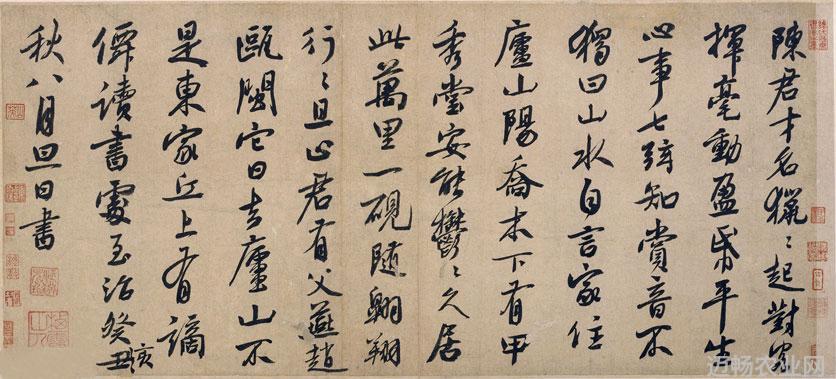 陳君才名獵〻起對客
揮毫動盈帋平生
心事七弦知賞音不
獨曰山水自言家住
廬山陽喬木下有甲
秀堂安能鬱〻久居
此萬里一硯随翱翔
行〻且止君有父燕趙
甌閩它日去廬山不
是東家丘上有謫
僊讀書處至治癸丑亥
秋八月旦日書
迈畅农业网